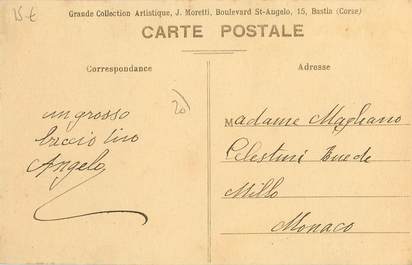 15 €
Grande Collection Artistique, J. Moretti, Boulevard St-Angelo, 15, Bastia (Corse)
CARTE POSTALE
Correspondance
Adresse
un grosso
baccio tuo
Angelo
20
Madame Magliano
Celestini Rue de
Millo
Monaco